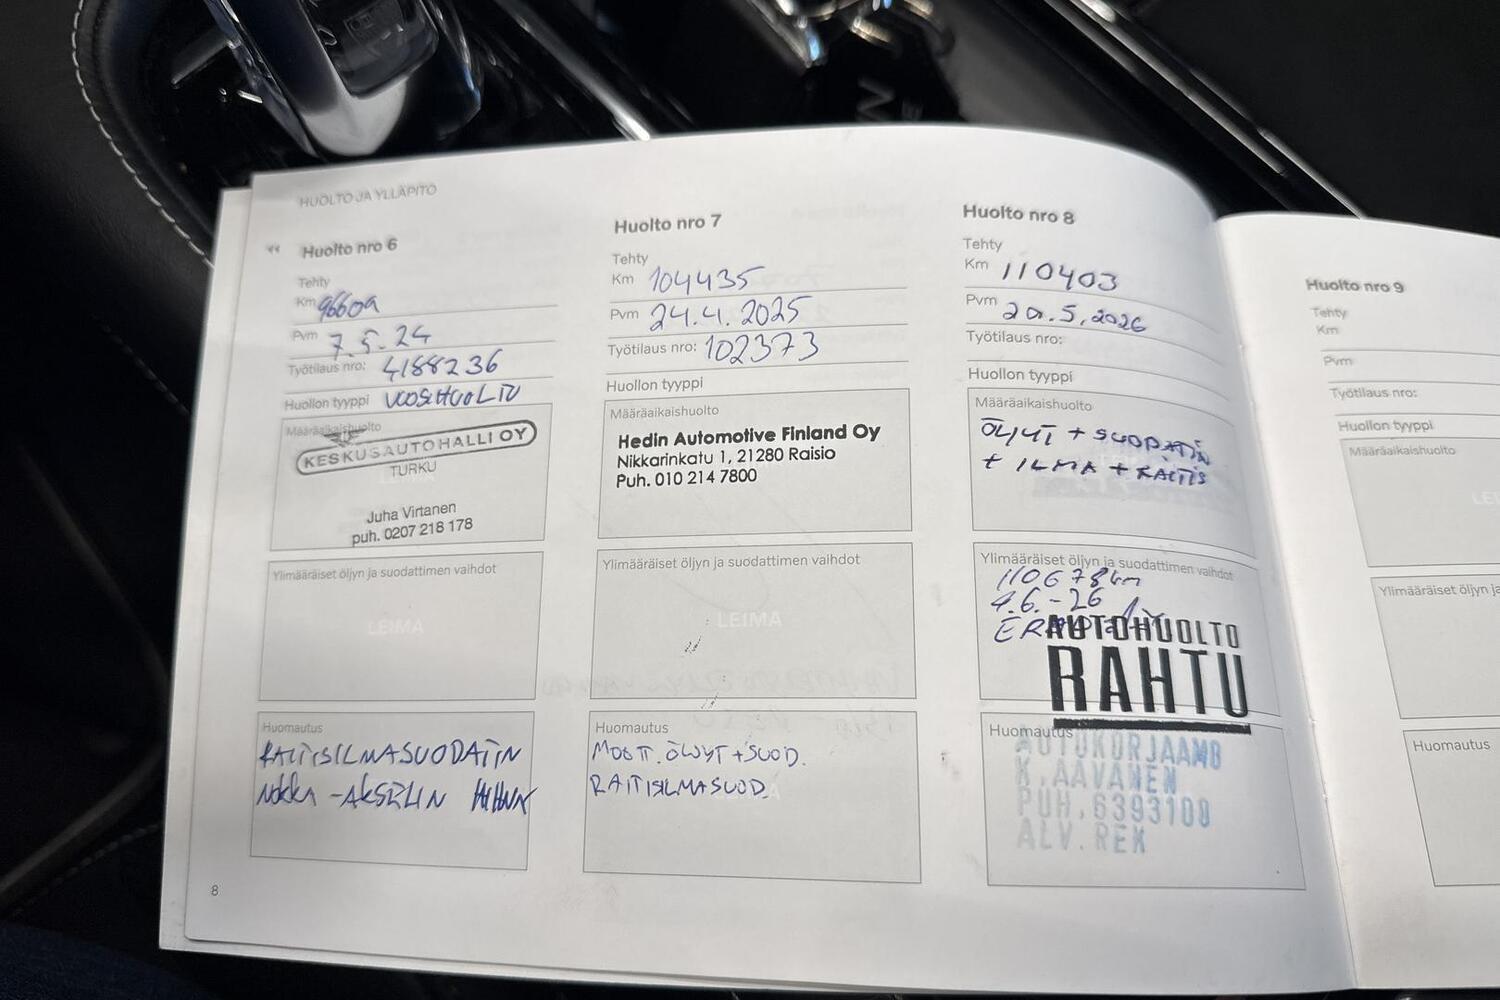 HUOLTO JA YLLÄPITO
Huolto nro 6
Tehty
Km 96609
Pvm 7.5.24
Työtilaus nro: 4188236
Huollon tyyppi VUOSIHUOLTO
Määräaikaishuolto
KESKUSAUTOHALLI OY
TURKU
LEIMA
Juha Virtanen
puh. 0207 218 178
Ylimääräiset öljyn ja suodattimen vaihdot
LEIMA
Huomautus
RAITISILMASUODATIN
NOKKA-AKSELIN HIHNA
8
Huolto nro 7
Tehty
Km 104435
Pvm 24.4.2025
Työtilaus nro: 102373
Huollon tyyppi
Määräaikaishuolto
Hedin Automotive Finland Oy
Nikkarinkatu 1, 21280 Raisio
Puh. 010 214 7800
Ylimääräiset öljyn ja suodattimen vaihdot
LEIMA
Huomautus
MOOTT. ÖLJYT + SUOD.
RAITISILMASUOD.
Huolto nro 8
Tehty
Km 110403
Pvm 20.5.2026
Työtilaus nro:
Huollon tyyppi
Määräaikaishuolto
ÖLJYT + SUODATIN
+ ILMA + RAITIS
Ylimääräiset öljyn ja suodattimen vaihdot
110678km
4.6.-26
AUTOHUOLTO
RAHTU
Huomautus
AUTOKORJAAMO
K.AAVANEN
PUH.6393100
ALV.REK
Huolto nro 9
Tehty
Km
Pvm
Työtilaus nro:
Huollon tyyppi
Määräaikaishuolto
Ylimääräiset öljyn ja
Huomautus